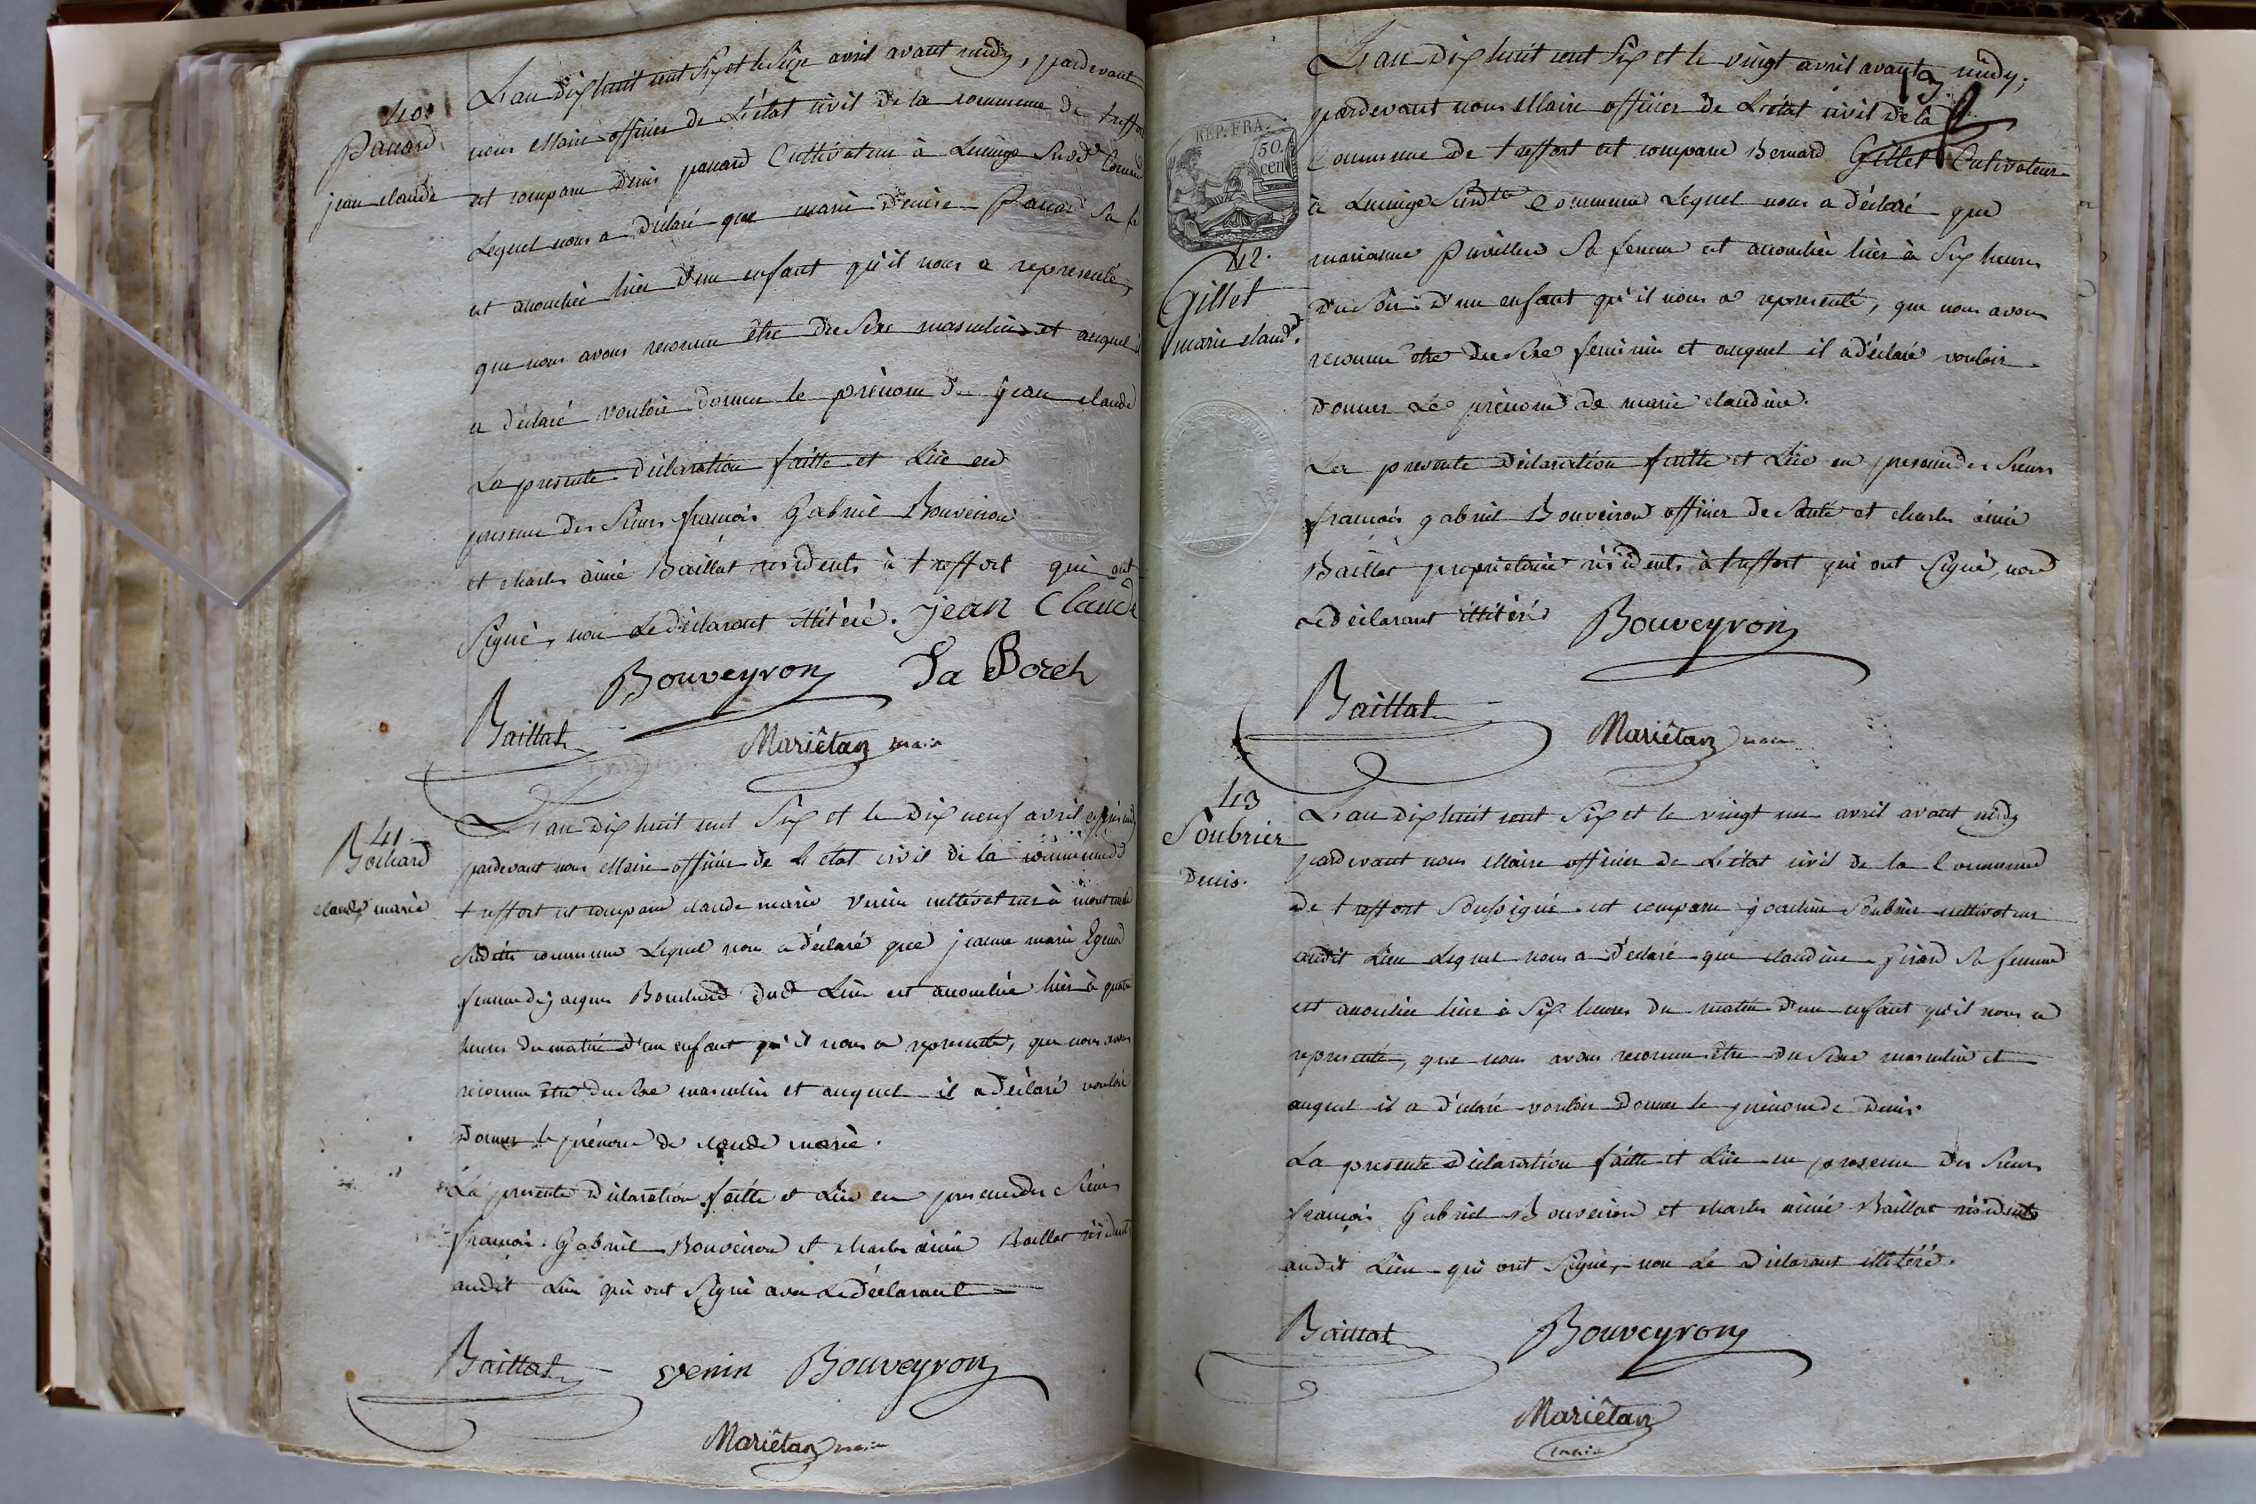 40
Panard
jean claude
L'an dix huit cent six et le seize avril avant midy, pardevant
nous Maire officier de L'état civil de la commune de treffort
est comparu denis panard Cultivateur à Lucinge
Lequel nous a déclaré que marie denise Panard sa
est accouchée hier d'un enfant qu'il nous a représenté,
que nous avons reconnu être du sexe masculin et auquel il
a déclaré vouloir donner le prénom de jean claude
La presente déclaration faitte et Lüe en
presence des sieurs françois Gabriel Bouveiron
et charles aimé Baillat résidents à treffort qui ont
signé, non le déclarant illitéré. jean Claude
Bouveyron La Boreh
Baillat
Mariêtan maire
41
Bochard
claude marie
L'an dix huit cent six et le dix neuf avril après midy
pardevant nous Maire officier de L'etat civil de la commune de
treffort est comparu claude marie Venin cultivateur à
susditte commune Lequel nous a déclaré que jeanne marie
femme de jacques Bouchard dud. Lieu est accouchée hier à quatre
heures du matin d'un enfant qu'il nous a représenté, que nous avons
reconnu être du sexe masculin et auquel il a déclaré vouloir
donner le prénom de claude marie.
La presente déclaration faitte et Lüe en presence des sieurs
françois Gabriel Bouveiron et charles aimé Baillat résidents
audit Lieu qui ont signé avec le déclarant
Baillat venin Bouveyron
Mariêtan maire
REP. FRA.
50
cen
L'an dix huit cent six et le vingt avril avant midy,
pardevant nous Maire officier de L'état civil de la
Commune de treffort est comparu Bernard Gillet Cultivateur
à Lucinge susdte Commune Lequel nous a déclaré que
marianne sa femme est accouchée hier à six heures
du soir d'un enfant qu'il nous a représenté, que nous avons
reconnu être du sexe feminin et auquel il a déclaré vouloir
donner Le prénom de marie claudine.
42.
Gillet
marie claudine
La presente déclaration faitte et Lüe en presence des sieurs
françois gabriel Bouveiron officier de santé et charles aimé
Baillat propriétaire résidents à treffort qui ont signé, non
le déclarant illitéré
Bouveyron
Baillat
Mariêtan maire
43
Soubrier
Denis.
L'an dix huit cent six et le vingt un avril avant midy
pardevant nous Maire officier de L'état civil de la Commune
de treffort soussigné est comparu joachim Soubrier cultivateur
audit Lieu Lequel nous a déclaré que claudine sa femme
est accouchée hier à six heures du matin d'un enfant qu'il nous a
représenté, que nous avons reconnu être du sexe masculin et
auquel il a déclaré vouloir donner le prénom de Denis.
La presente déclaration faitte et Lüe en presence des sieurs
françois Gabriel Bouveiron et charles aimé Baillat résidents
audit Lieu qui ont signé, non le déclarant illitéré.
Baillat Bouveyron
Mariêtan
maire